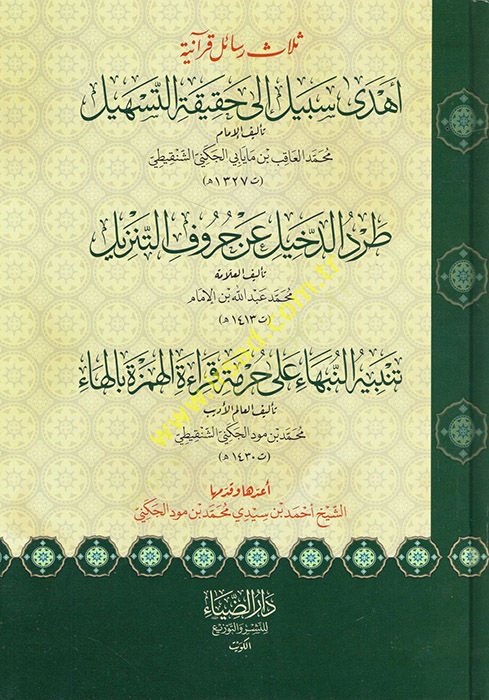 ثلاث رسائل قرآنية
أهدى سبيل إلى حقيقة التسهيل
تأليف الإمام
محمد العاقب بن مايابى الجكني الشنقيطي
(ت ١٣٢٧ ه)
طرد الدخيل عن حروف التنزيل
تأليف العلامة
محمد عبد الله بن الإمام
(ت ١٤١٣ ه)
تنبيه النبهاء على حرمة قراءة الهمزة بالهاء
تأليف العالم الأديب
محمد بن مود الجكني الشنقيطي
(ت ١٤٣٠ ه)
أعدها وقدم لها
الشيخ أحمد بن سيدي محمد بن مود الجكني
دار الضياء
للنشر والتوزيع
الكويت